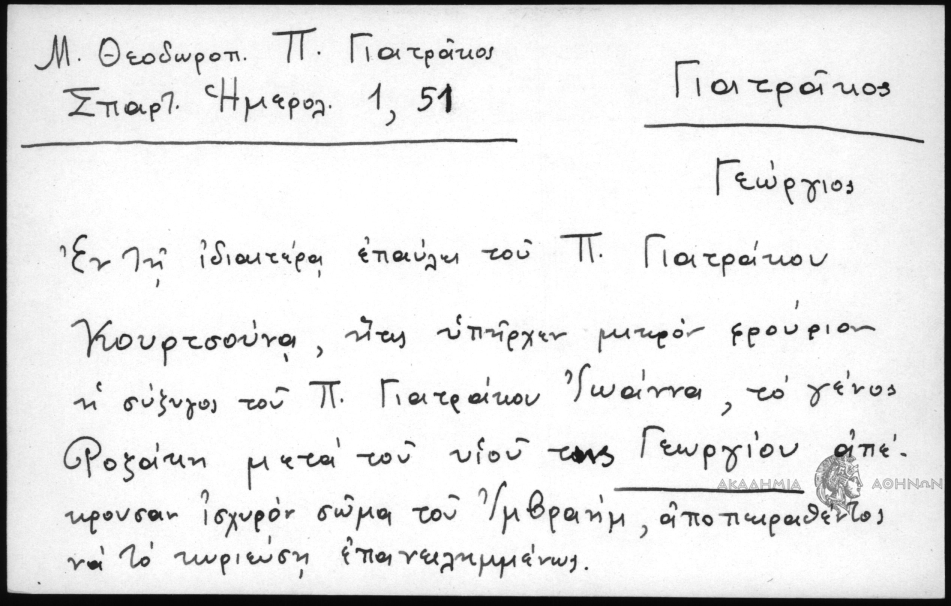 Μ. Θεοδωροπ. Π. Γιατρᾶκος
Σπαρτ. Ἡμερολ. 1, 51
Γιατρᾶκος
Γεώργιος
Ἐν τῇ ἰδιαιτέρᾳ ἐπαύλει τοῦ Π. Γιατράκου
Κουρτσούνᾳ, ἥτις ὑπῆρχεν μικρόν φρούριον
ἡ σύζυγος τοῦ Π. Γιατράκου Ἰωάννα, τό γένος
Ροζάκη μετά τοῦ υἱοῦ της Γεωργίου ἀπέ-
κρουσαν ἰσχυρόν σῶμα τοῦ Ἰμβραήμ, ἀποπειραθέντος
νά τό κυριεύσῃ ἐπανειλημμένως.
ΑΚΑΔΗΜΙΑ ΑΘΗΝΩΝ